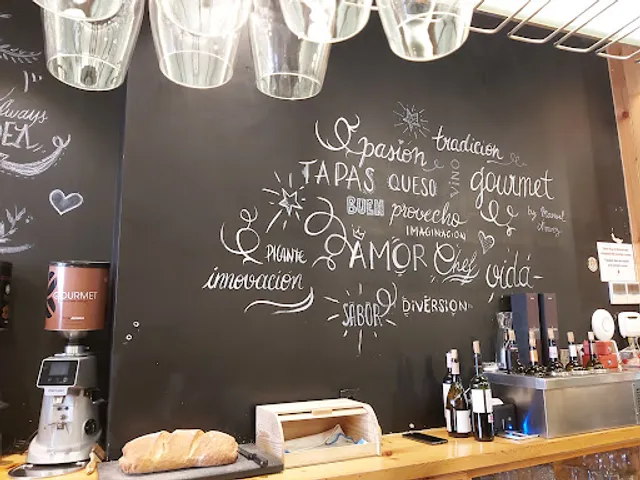 always
pasión
tradicion
TAPAS QUESO
VINO
gourmet
BUEN provecho
by Manuel
IMAGINACION
PICANTE
AMOR Chef vida
innovación
SABOR
DIVERSION
GOURMET